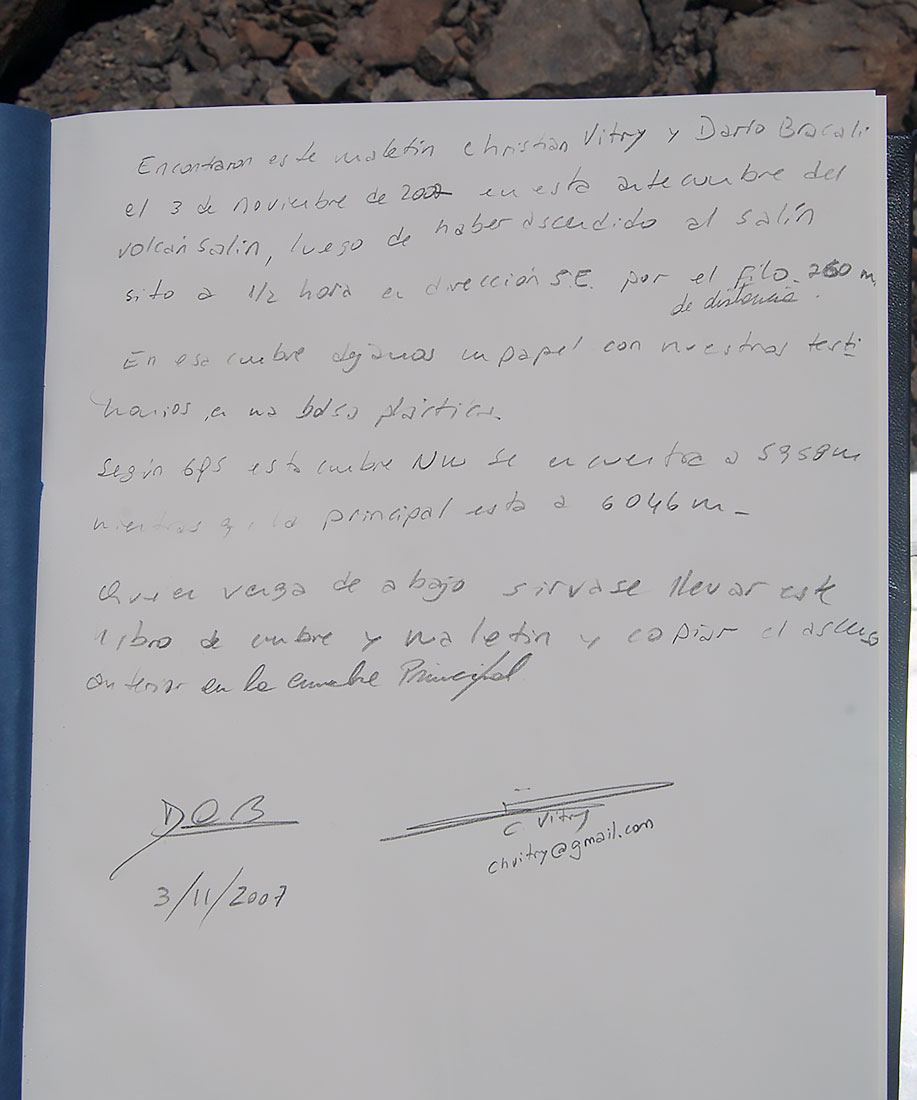 Encontraron este maletín Christian Vitry y Darío Bracali
el 3 de noviembre de 2007 en esta antecumbre del
volcán Salín, luego de haber ascendido al Salín
sito a 1/2 hora en dirección S.E. por el filo. 260 m
de distancia.
En esa cumbre dejamos un papel con nuestros testi
monios en una bolsa plástica.
Según GPS esta cumbre NW se encuentra a 5958m
mientras q' la principal está a 6046 m_
Quien venga de abajo sirvase llevar este
libro de cumbre y maletín y copiar el ascenso
anterior en la cumbre Principal
DOB
C. Vitry
chvitry@gmail.com
3/11/2007